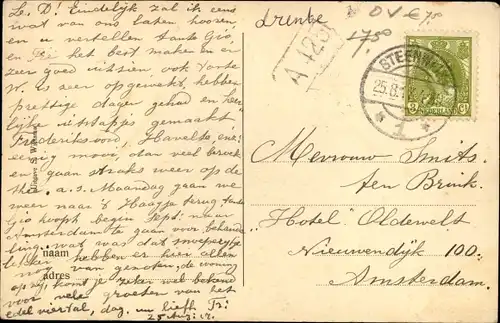 L. D! Eindelijk zal ik eens
wat van ons laten hooren,
en u vertellen tante Gio,
en het best maken en er
zeer goed uitzien ook Tante
W. is zeer op gewekt, hebben
prettige dagen gehad en heer-
lijke uitstapjes gemaakt
Frederiksoord, Havelte, enz.
eenig mooi, dan veel
en gaan straks weer op de
a.s. Maandag gaan we
weer naar 't Haagje terug, tante
Gio hoopt begin Sept: naar
Amsterdam te gaan voor behande
ling, wat was dat
hebben er hier allen
nog van genoten, de woning
komt je zeker wel bekend
voor vele groeten van het
edel viertal, dag, uw liefh
25 Aug.
naam
adres
Drenthe
DV € 7,50
7,50
A 4281
STEENWIJK
25.8
1
NEDERLAND
3 Ct
Mevrouw Smits.
ten Brink.
"Hotel" Oldewelt
Nieuwendijk 100.
Amsterdam.